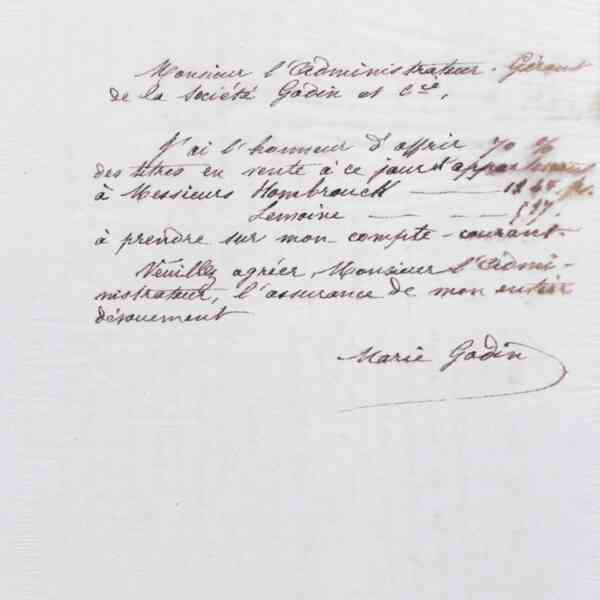 Monsieur l'Administrateur-Gérant
de la Société Godin et Cie,
J'ai l'honneur d'offrir 70 %
des titres en vente à ce jour et appartenant
à Messieurs Hombrouck —— 1247 fr.
Lemoine — — — 537.
à prendre sur mon compte-courant.
Veuillez agréer, Monsieur l'Admi-
nistrateur, l'assurance de mon entier
dévouement
Marie Godin